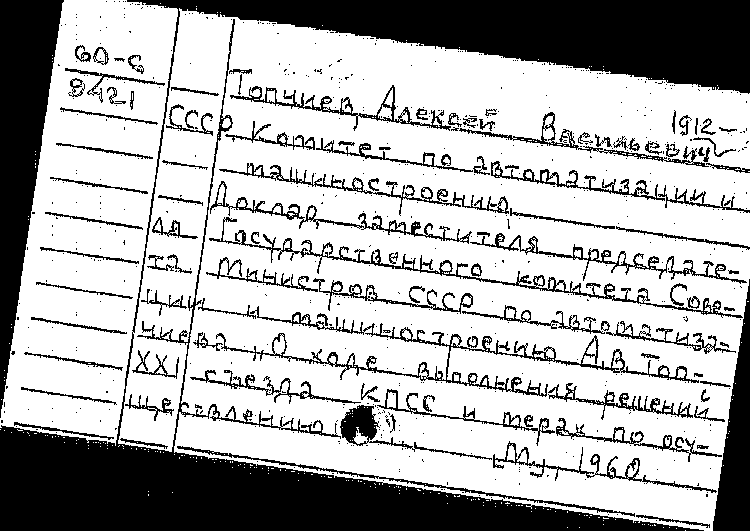 60-6
8421
Топчиев, Алексей Васильевич 1912-
СССР. Комитет по автоматизации и
машиностроению.
Доклад заместителя председате-
ля Государственного комитета Сове-
та Министров СССР по автоматиза-
ции и машиностроению А.В. Топ-
чиева „О ходе выполнения решений
XXI съезда КПСС и мерах по осу-
ществлению ...
М., 1960.